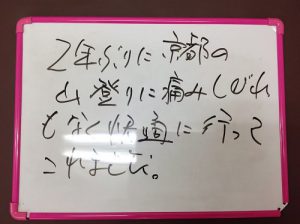 2年ぶりに京都の
山登りに痛みしびれ
もなく快適に行って
これました。